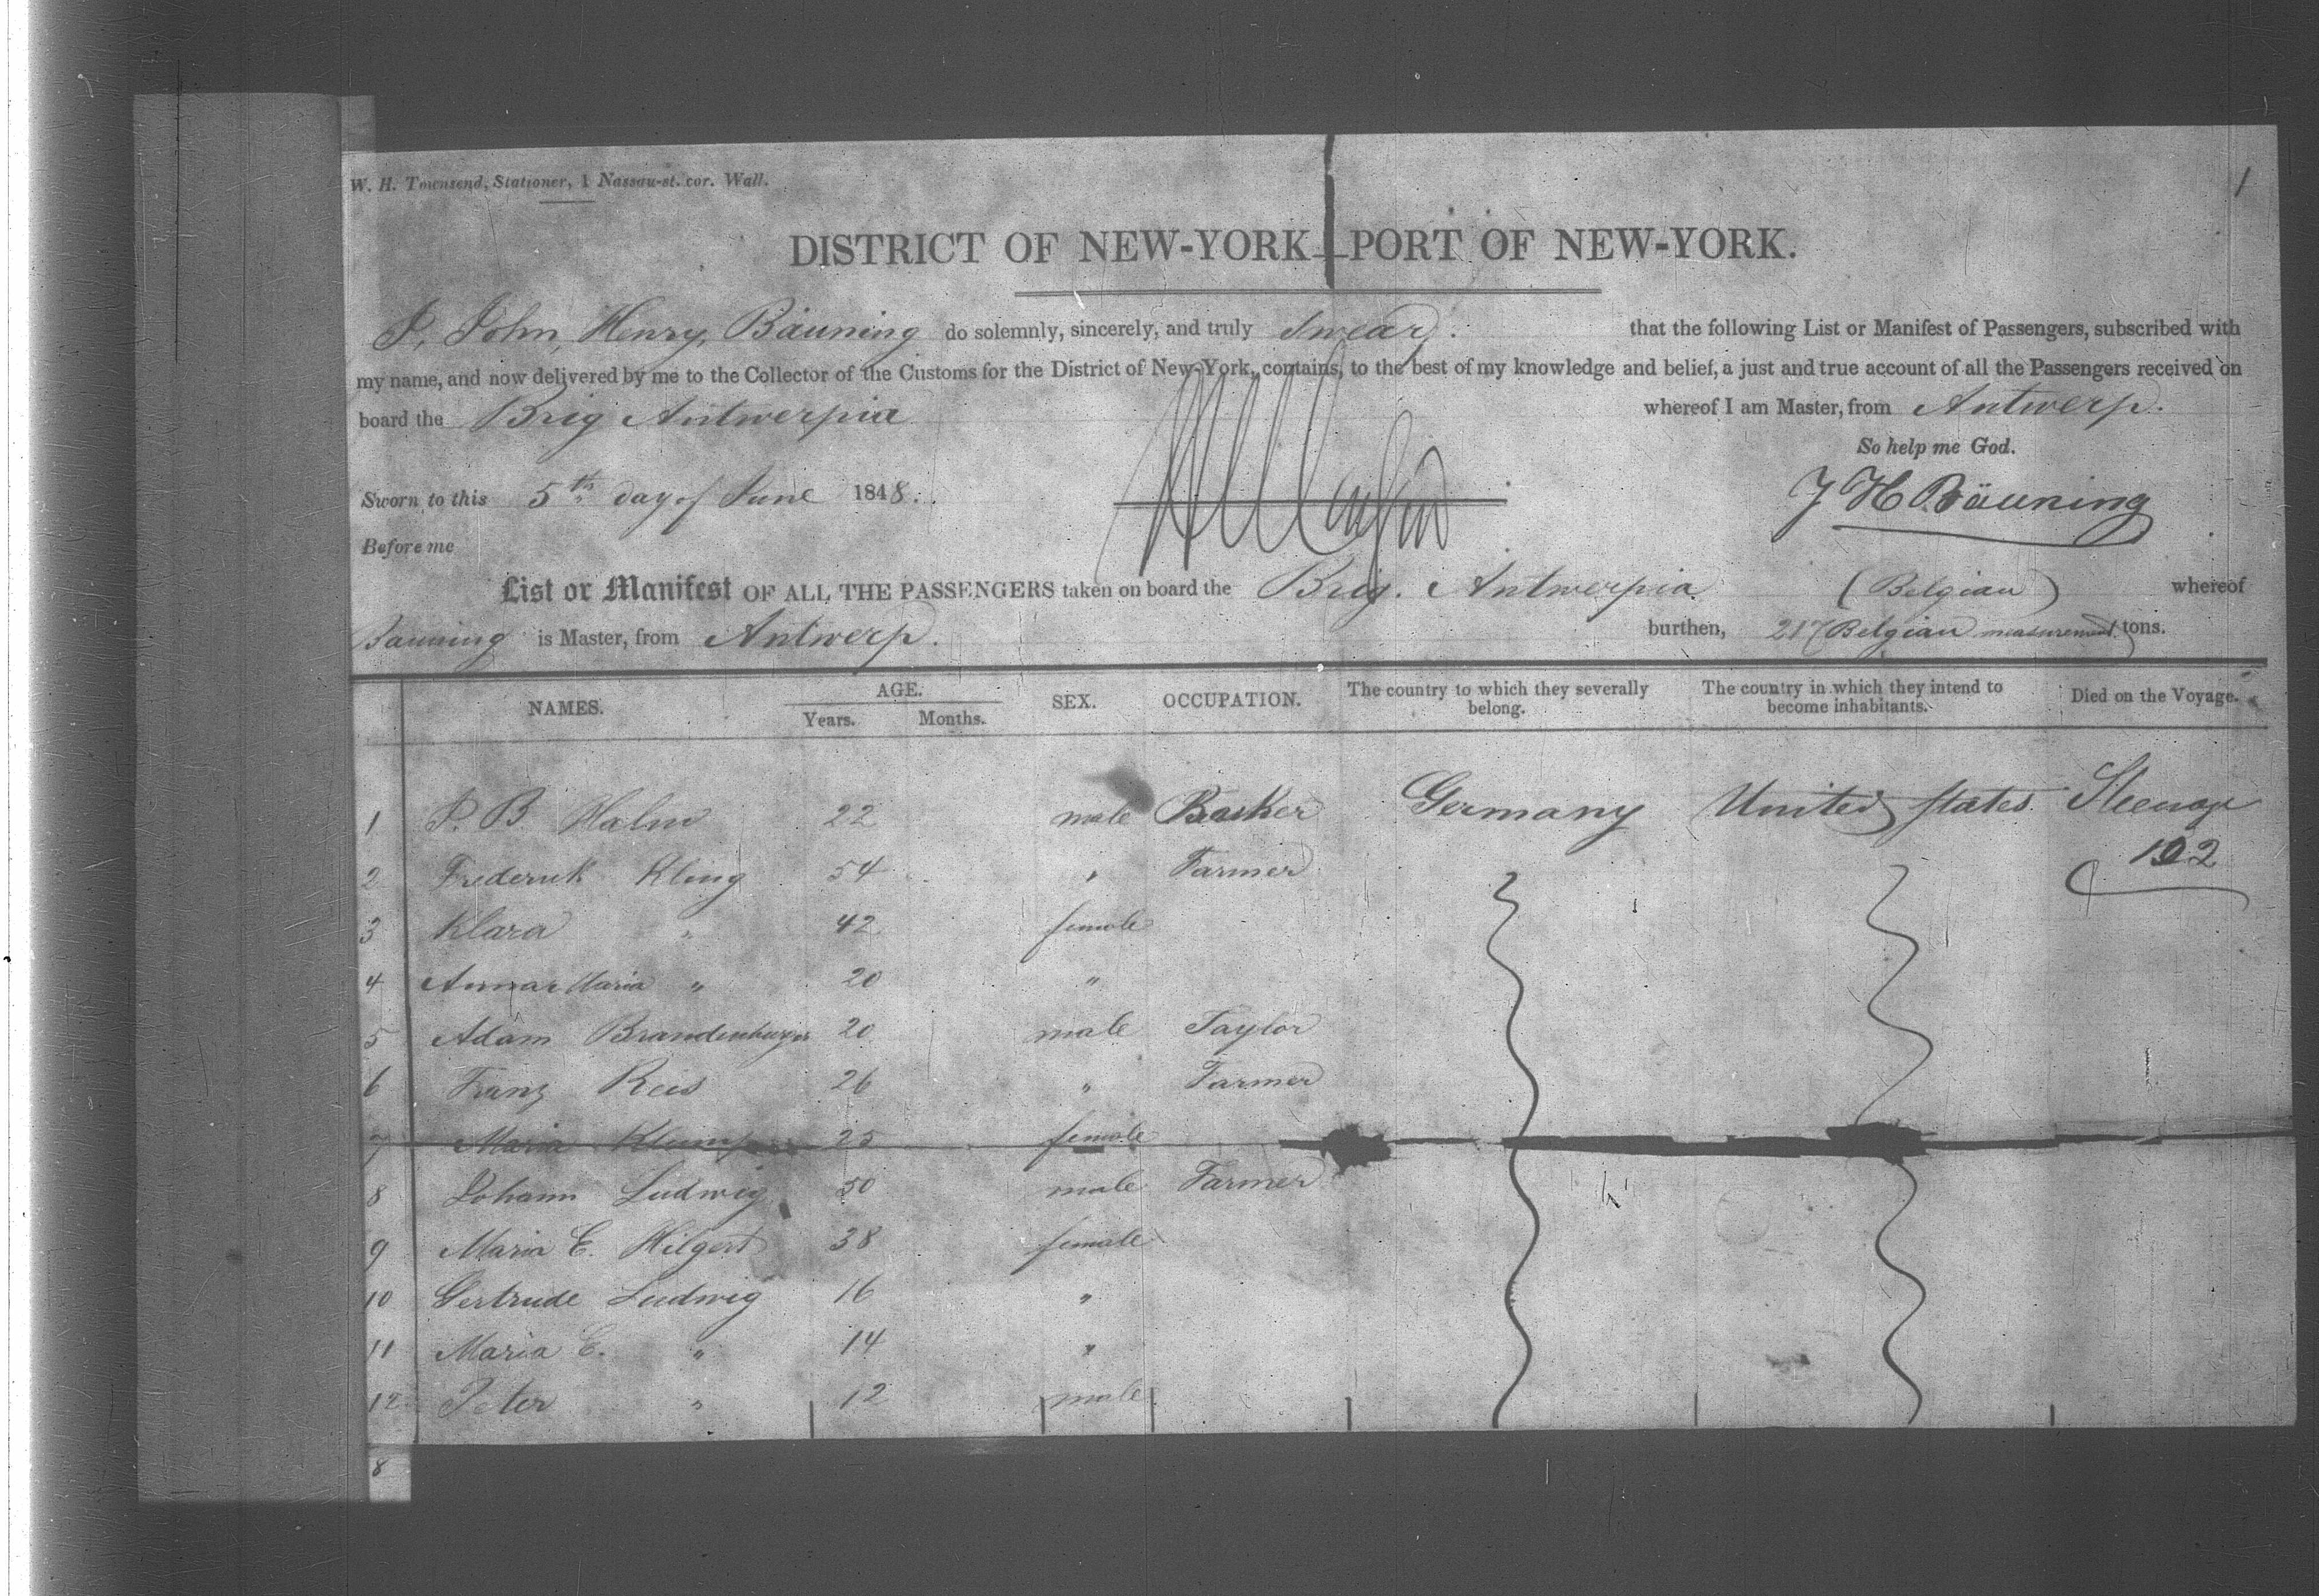 1
W. H. Townsend, Stationer, 1 Nassau-st. cor. Wall.
DISTRICT OF NEW-YORK—PORT OF NEW-YORK.
I, John, Henry, Bäuning do solemnly, sincerely, and truly Swear. that the following List or Manifest of Passengers, subscribed with
my name, and now delivered by me to the Collector of the Customs for the District of New-York, contains, to the best of my knowledge and belief, a just and true account of all the Passengers received on
board the Brig Antwerpia whereof I am Master, from Antwerp.
So help me God.
Sworn to this 5th day of June 1848. J H Bäuning
Before me
List or Manifest OF ALL THE PASSENGERS taken on board the Brig. Antwerpia (Belgian) whereof
Bäuning is Master, from Antwerp. burthen, 217 (Belgian measurement) tons.
NAMES. AGE. Years. Months. SEX. OCCUPATION. The country to which they severally belong. The country in which they intend to become inhabitants. Died on the Voyage.
1 P. B. Halm 22 male Germany United States. Steerage
2 Frederick Kling 54 " Farmer 102
3 Klara " 42 female
4 Anna Maria " 20 "
5 Adam Brandenburger 20 male Taylor
6 Franz Reis 26 " Farmer
7 Maria 25 female
8 Johann Ludwig 50 male Farmer
9 Maria E. Hilgert 38 female
10 Gertrude Ludwig 16 "
11 Maria E. " 14 "
12 Peter " 12 male
8